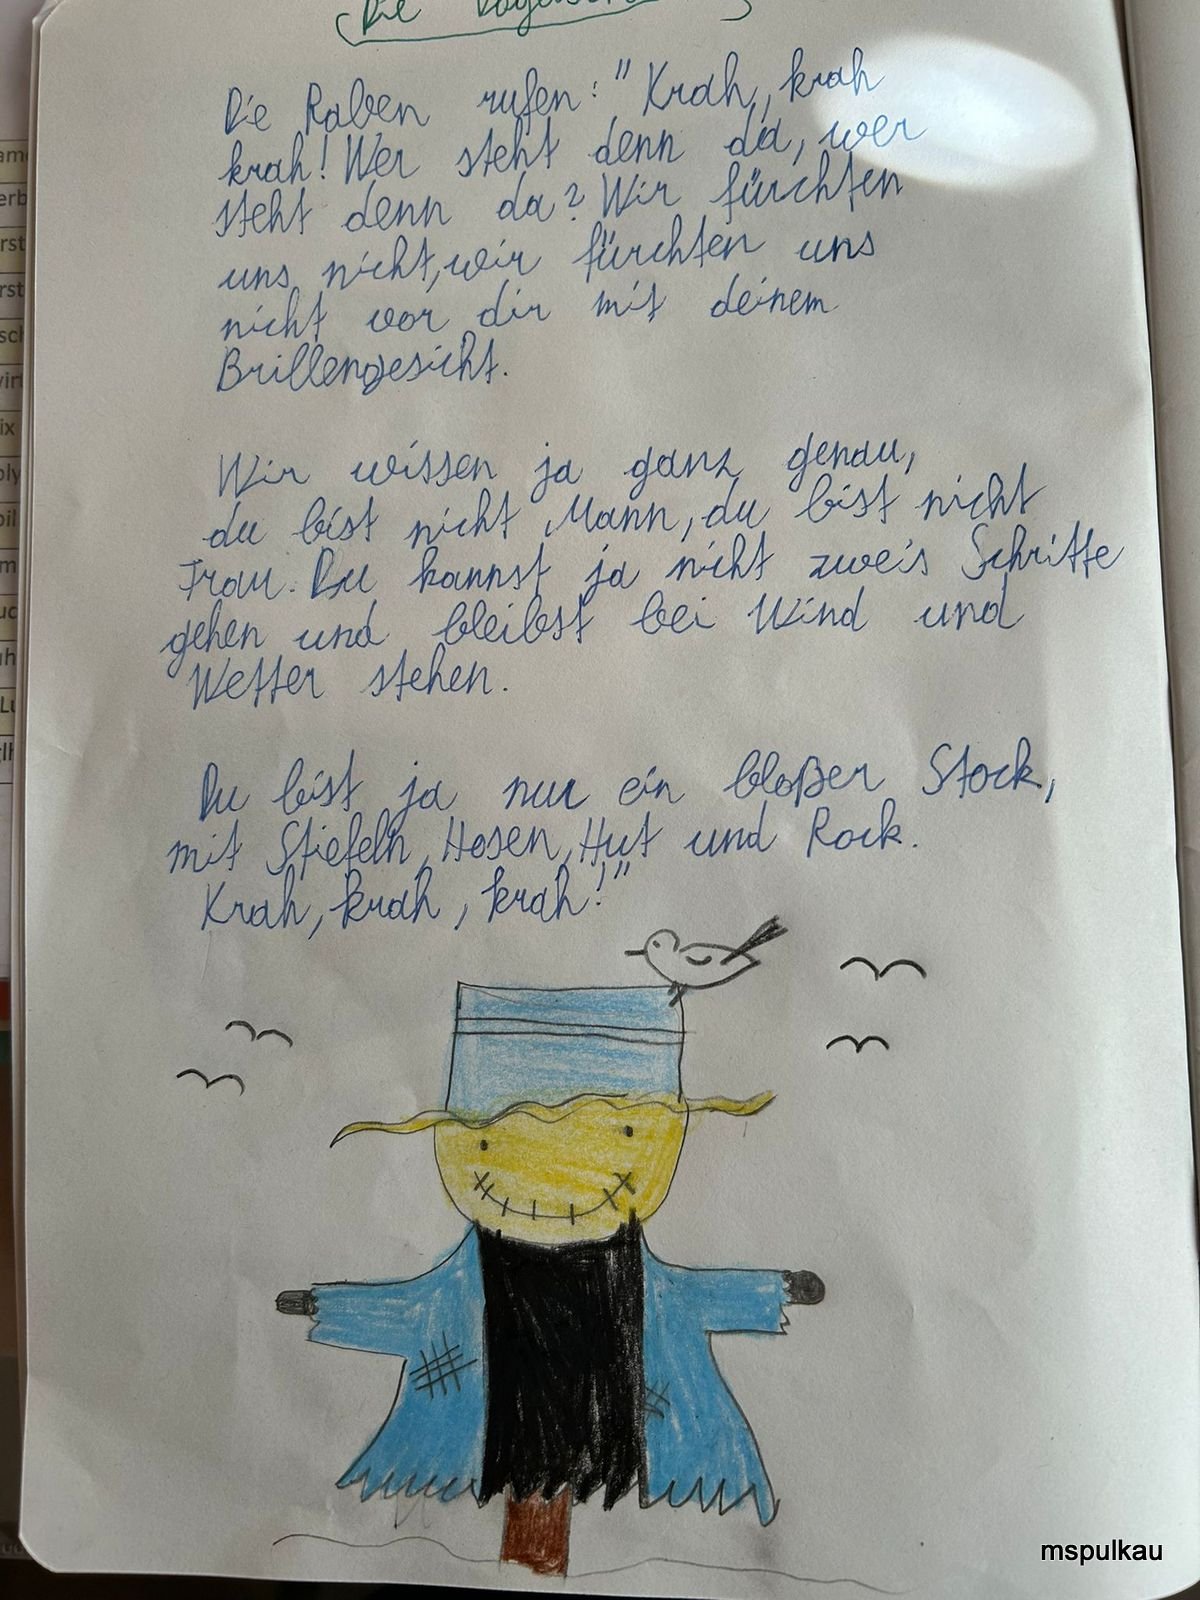 Die
Die Raben rufen: "Krah, krah
krah! Wer steht denn da, wer
steht denn da? Wir fürchten
uns nicht, wir fürchten uns
nicht vor dir mit deinem
Brillengesicht.
Wir wissen ja ganz genau,
du bist nicht Mann, du bist nicht
Frau. Du kannst ja nicht zwei Schritte
gehen und bleibst bei Wind und
Wetter stehen.
Du bist ja nur ein bloßer Stock,
mit Stiefeln, Hosen, Hut und Rock.
Krah, krah, krah!"
mspulkau